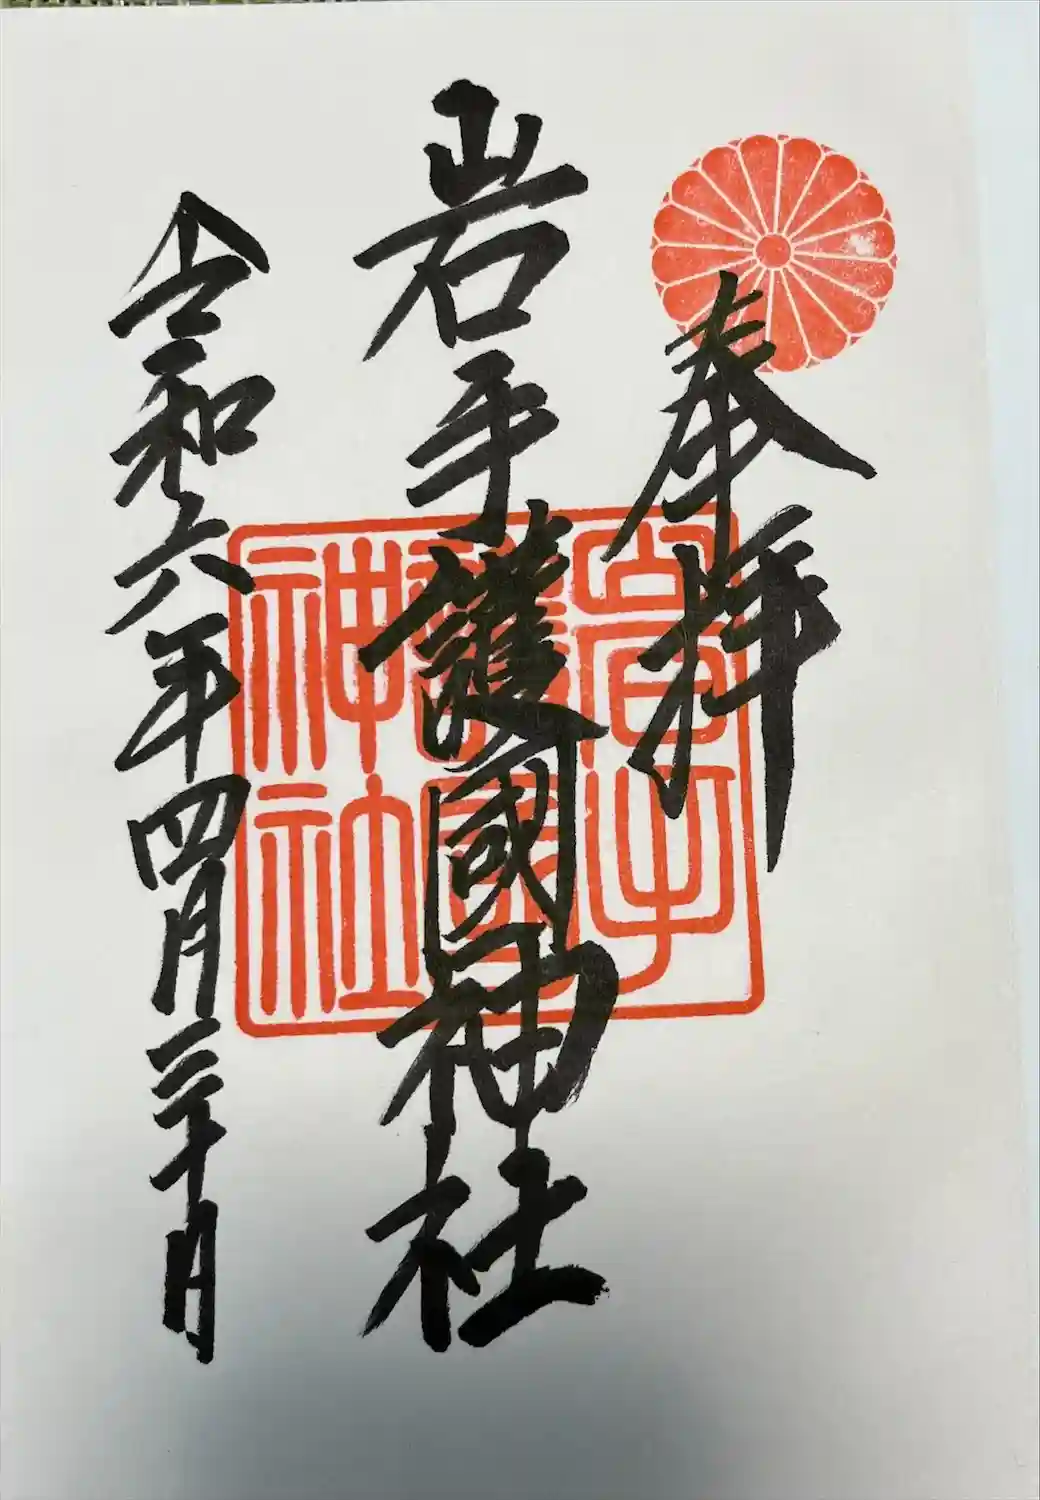 奉拝
岩手護國神社
岩手
護國
神社
令和六年四月三十日